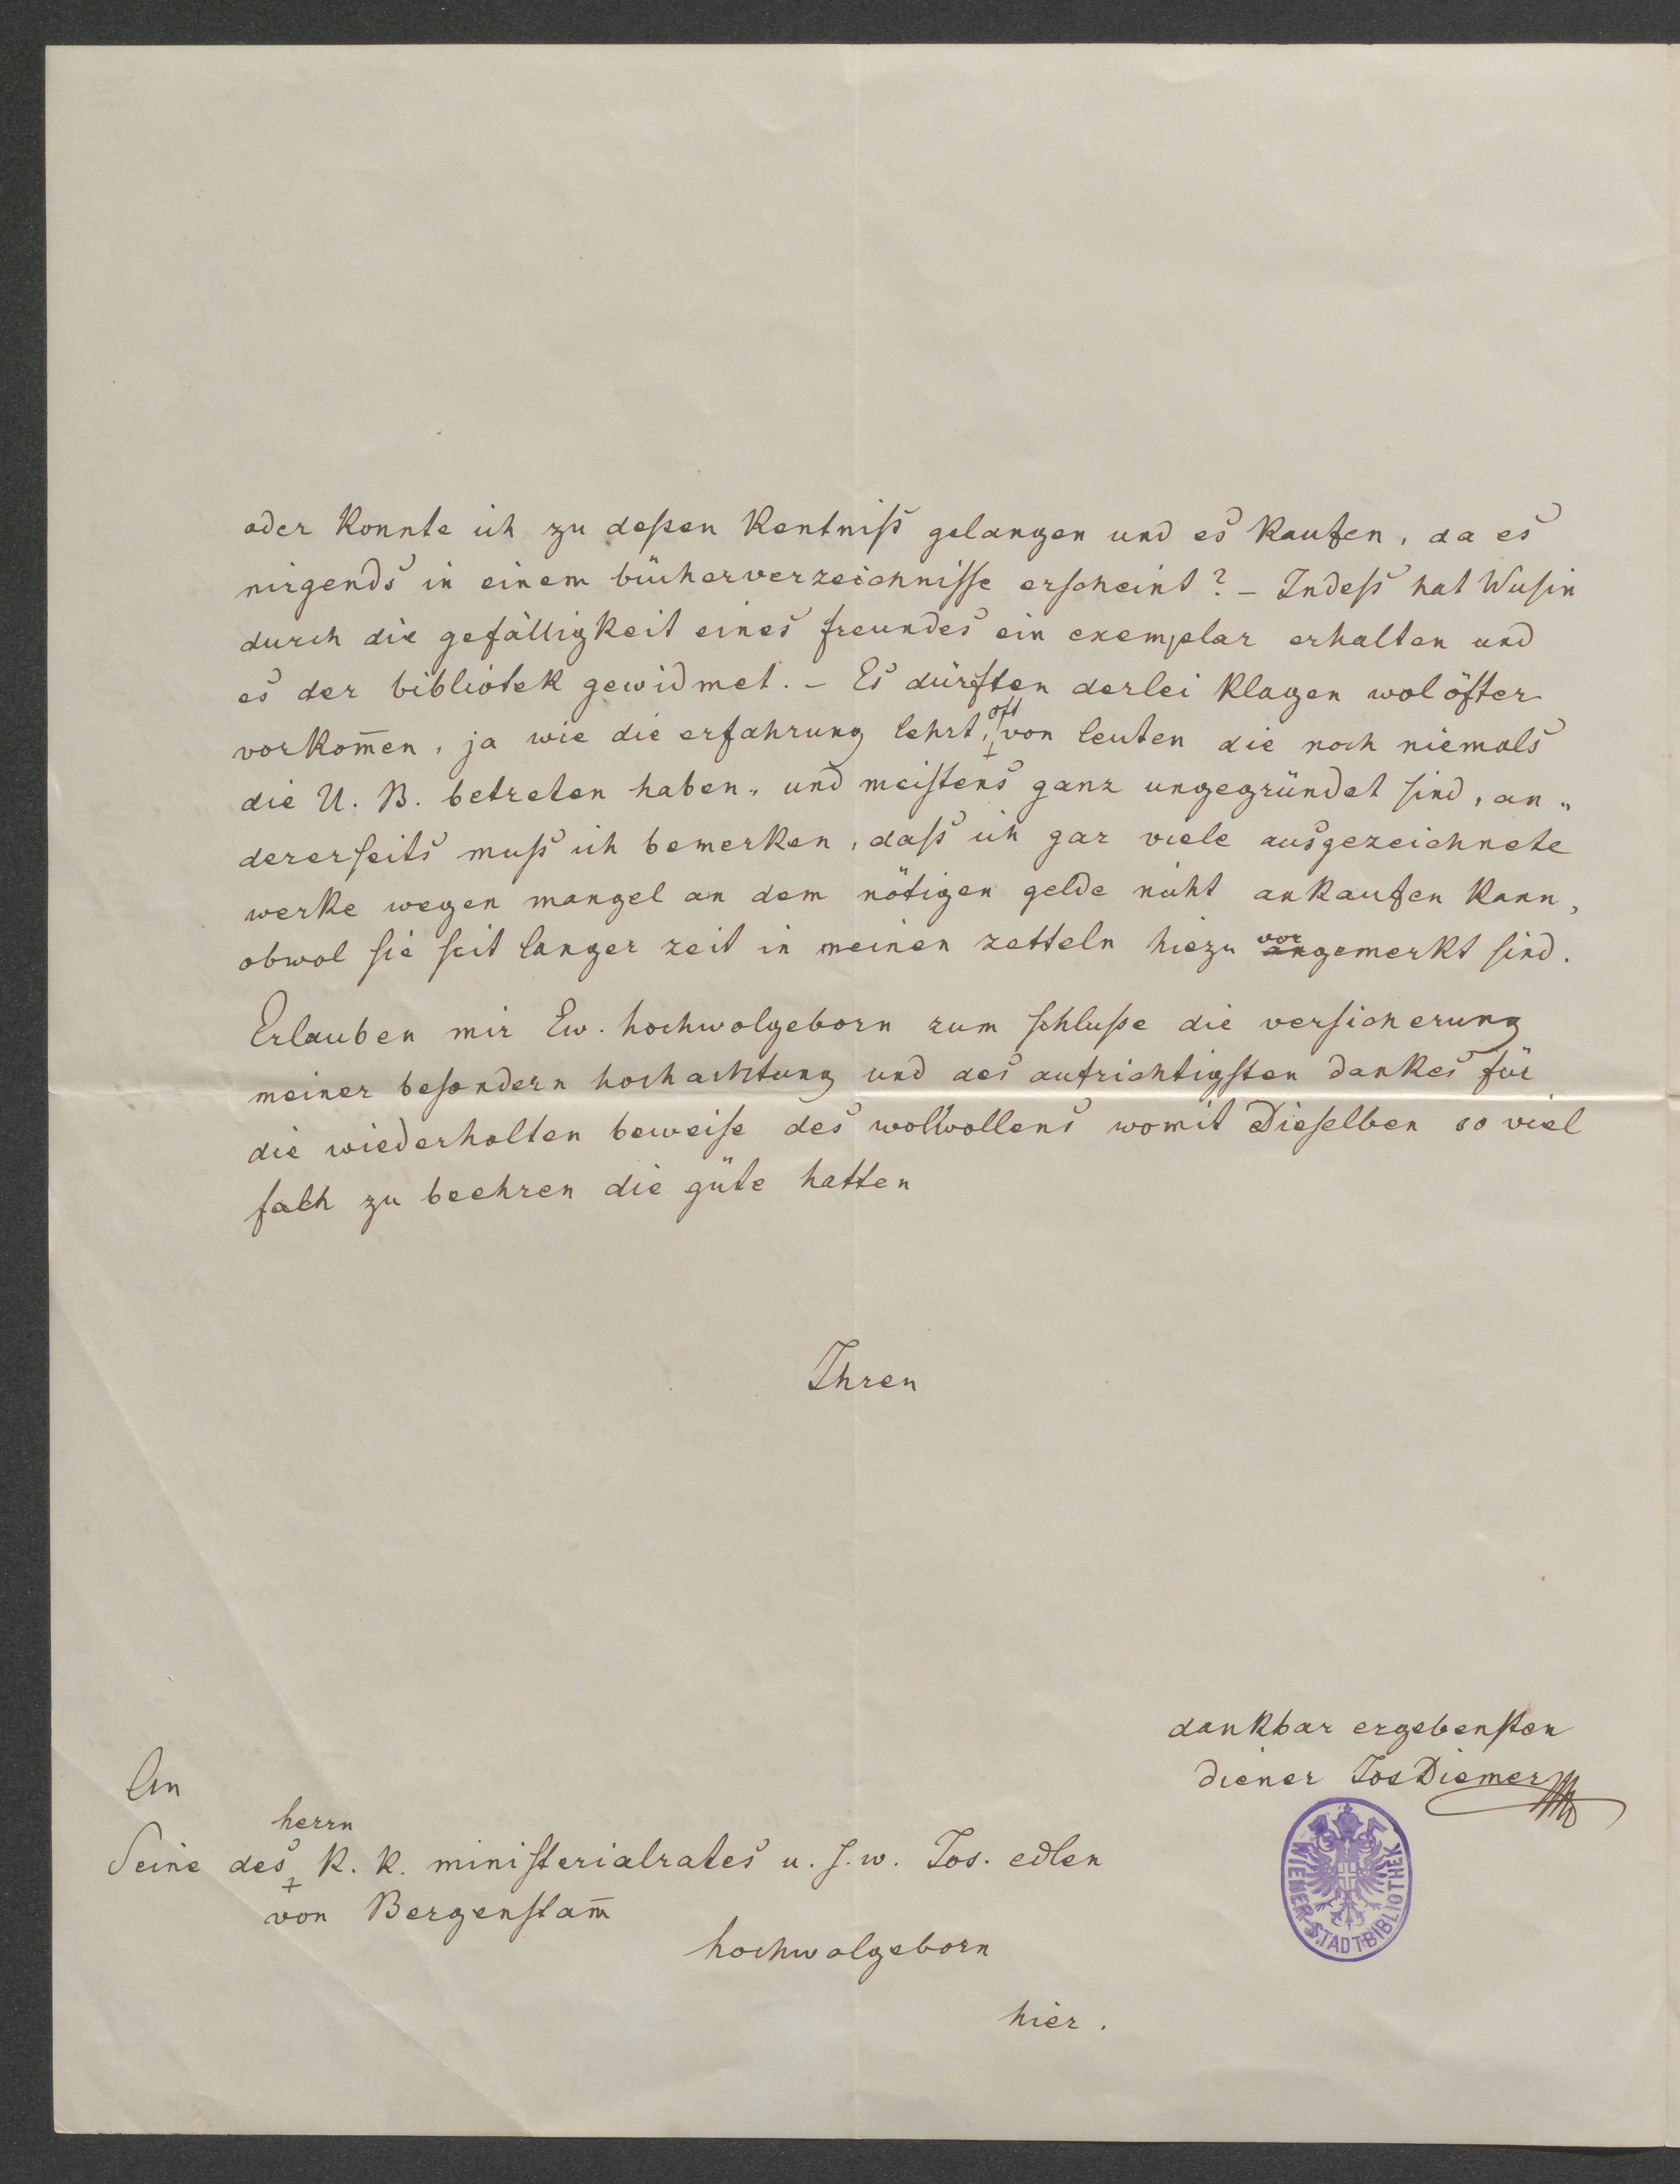 oder konnte ich zu deßen kentniſs gelangen und es kaufen, da es
nirgends in einem bücherverzeichniſſe erſcheint? – Indeſs hat Wuſin
durch die gefälligkeit eines freundes ein exemplar erhalten und
es der bibliotek gewidmet. – Es dürften derlei klagen wol öfter
vorkom̅en, ja wie die erfahrung lehrt, oft von leuten die noch niemals
die U. B. betreten haben„ und meiſtens ganz ungegründet ſind, an„
dererſeits muſs ich bemerken, daſs ich gar viele ausgezeichnete
werke wegen mangel an dem nötigen gelde nicht ankaufen kann,
obwol ſie ſeit langer zeit in meinen zetteln hiezu vorgemerkt ſind.
Erlauben mir Ew. hochwolgeborn zum ſchluße die verſicherung
meiner beſondern hochachtung und des aufrichtigſten dankes für
die wiederholten beweiſe des wolwollens womit Dieſelben so viel
fach zu beehren die güte hatten
Ihren
dankbar ergebenſten
diener Jos Diemer
An
Seine des herrn k. k. miniſterialrates u. ſ. w. Jos. edlen
von Bergenſtam̅
hochwolgeborn
hier.
WIENER STADTBIBLIOTHEK